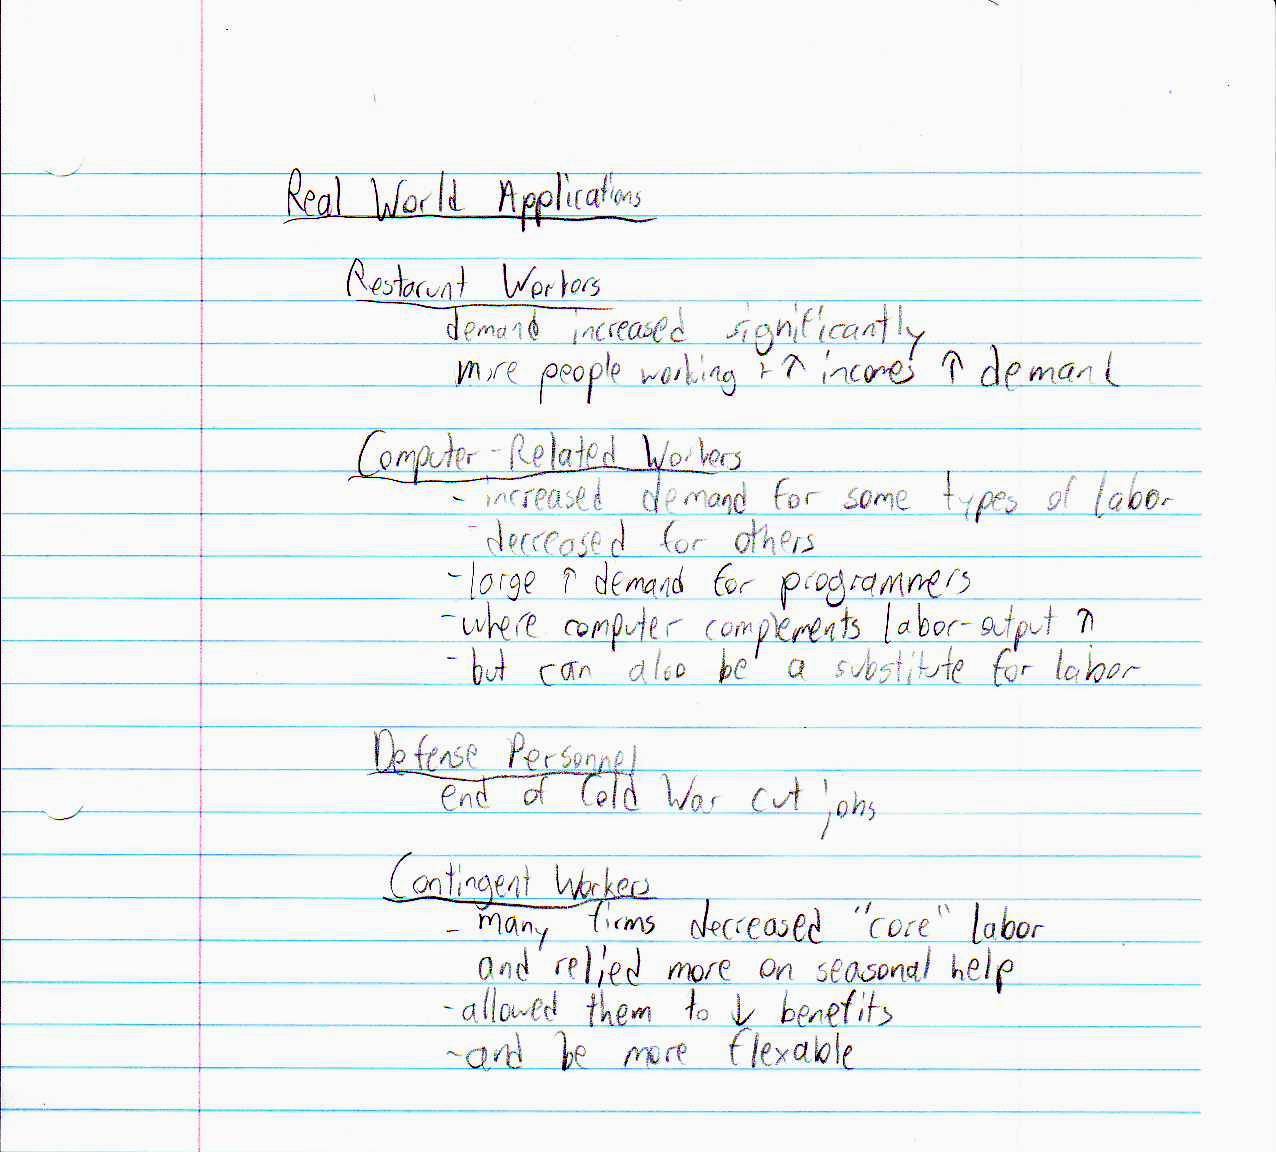 Real World Applications
Restarunt Workers
demand increased significantly
more people working + ↑ incomes ↑ demand
Computer-Related Workers
- increased demand for some types of labor
- decreased for others
- large ↑ demand for programmers
- where computer complements labor-output ↑
- but can also be a substitute for labor
Defense Personnel
end of Cold War cut jobs
Contingent Workers
- many firms decreased "core" labor
and relied more on seasonal help
- allowed them to ↓ benefits
- and be more flexable